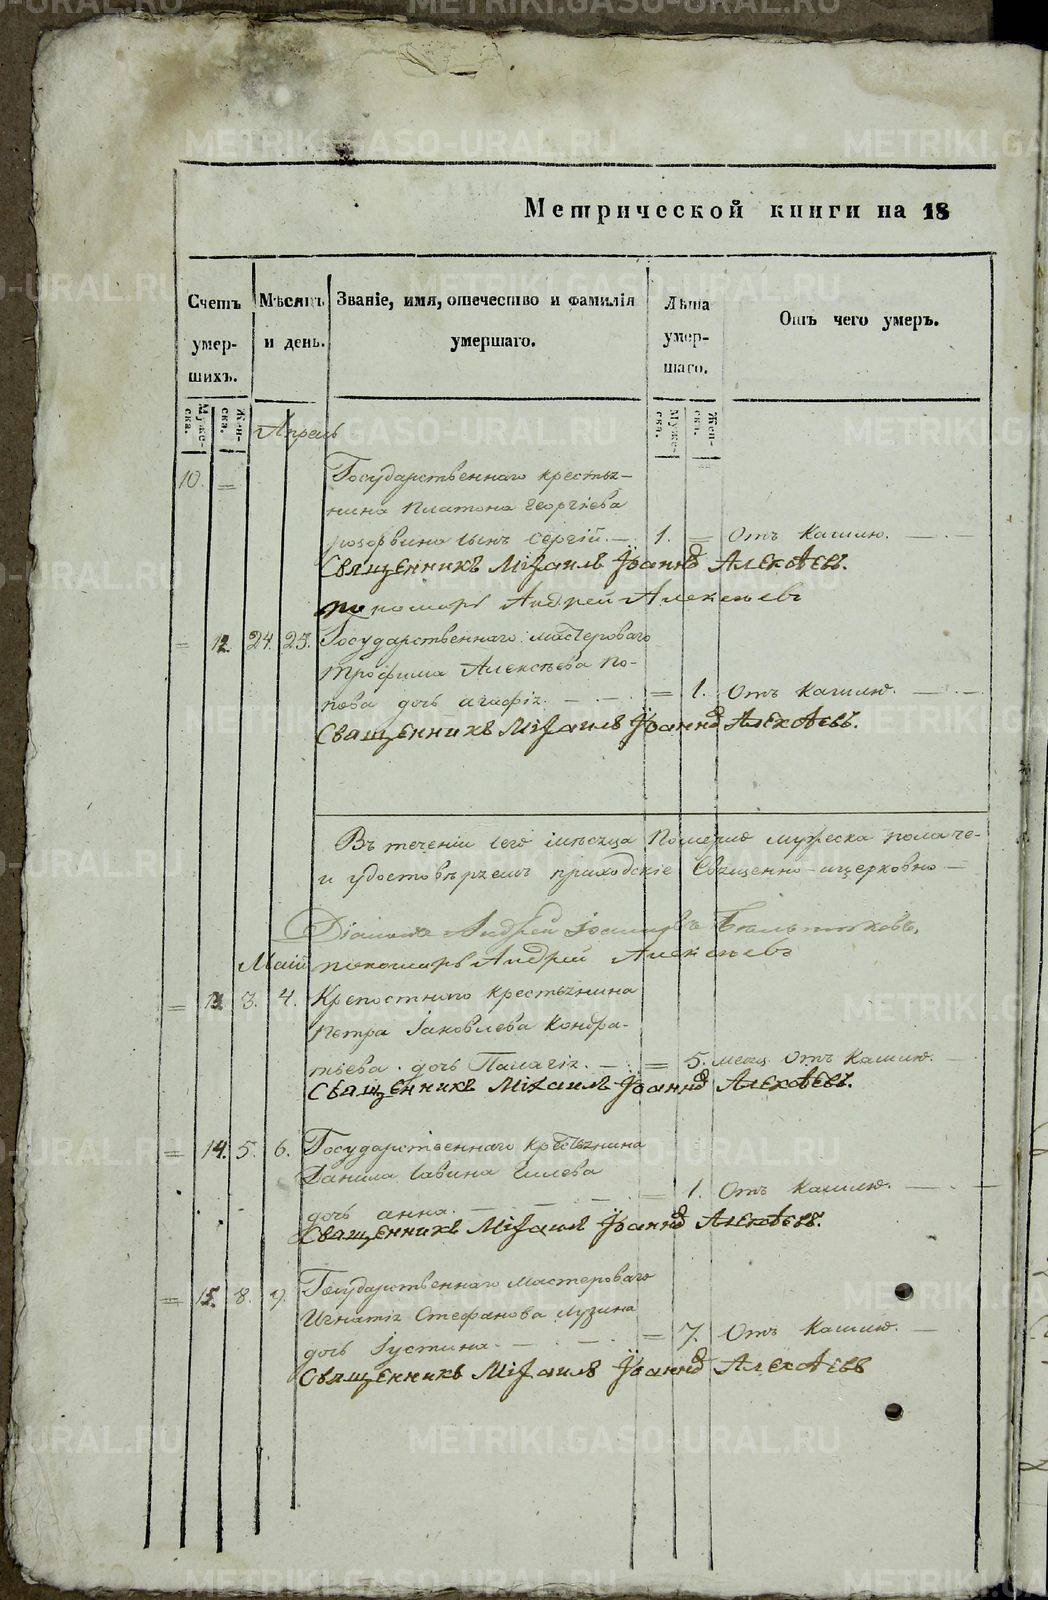 Метрической книги на 18
Счетъ умер-шихъ.
Мѣсяцъ и день.
Званіе, имя, отечество и фамилія умершаго.
Лѣта умер-шаго.
Отъ чего умеръ.
Муже-ска. Жен-ска.
Муже-ска. Жен-ска.
Апрель
10. = Государственнаго крестья-
нина Платона Георгіева
сынъ Сергій. — 1. = Отъ Кашлю. —
Священникъ Міхаилъ Іоанновъ Алексѣевъ.
пономарь Андрей Алексеевъ
= 12. 24. 25. Государственнаго мастероваго
Трофима Алексѣева По-
пова дочь Агафія. — = 1. Отъ Кашлю. —
Священникъ Міхаилъ Іоанновъ Алексѣевъ.
Въ теченіи сего мѣсяца Померло мужеска пола че-
и удостовѣряемъ приходскіе Священно-ицерковно —
Діаконъ Андрей Іоанновъ
Маій пономарь Андрей Алексеевъ
= 13. 3. 4. Крепостнаго крестьянина
Петра Іаковлева Кондра-
тьева дочь Палагія. — = 5. месяц. Отъ Кашлю. —
Священникъ Міхаилъ Іоанновъ Алексѣевъ.
= 14. 5. 6. Государственнаго Крестьянина
Данила Савина
дочь Анна. — = 1. Отъ Кашлю. —
Священникъ Міхаилъ Іоанновъ Алексѣевъ.
= 15. 8. 9. Государственнаго Мастероваго
Игнатія Стефанова Лузина
дочь Іустина. — = 7. Отъ Кашлю. —
Священникъ Міхаилъ Іоанновъ Алексѣевъ
METRIKI.GASO-URAL.RU